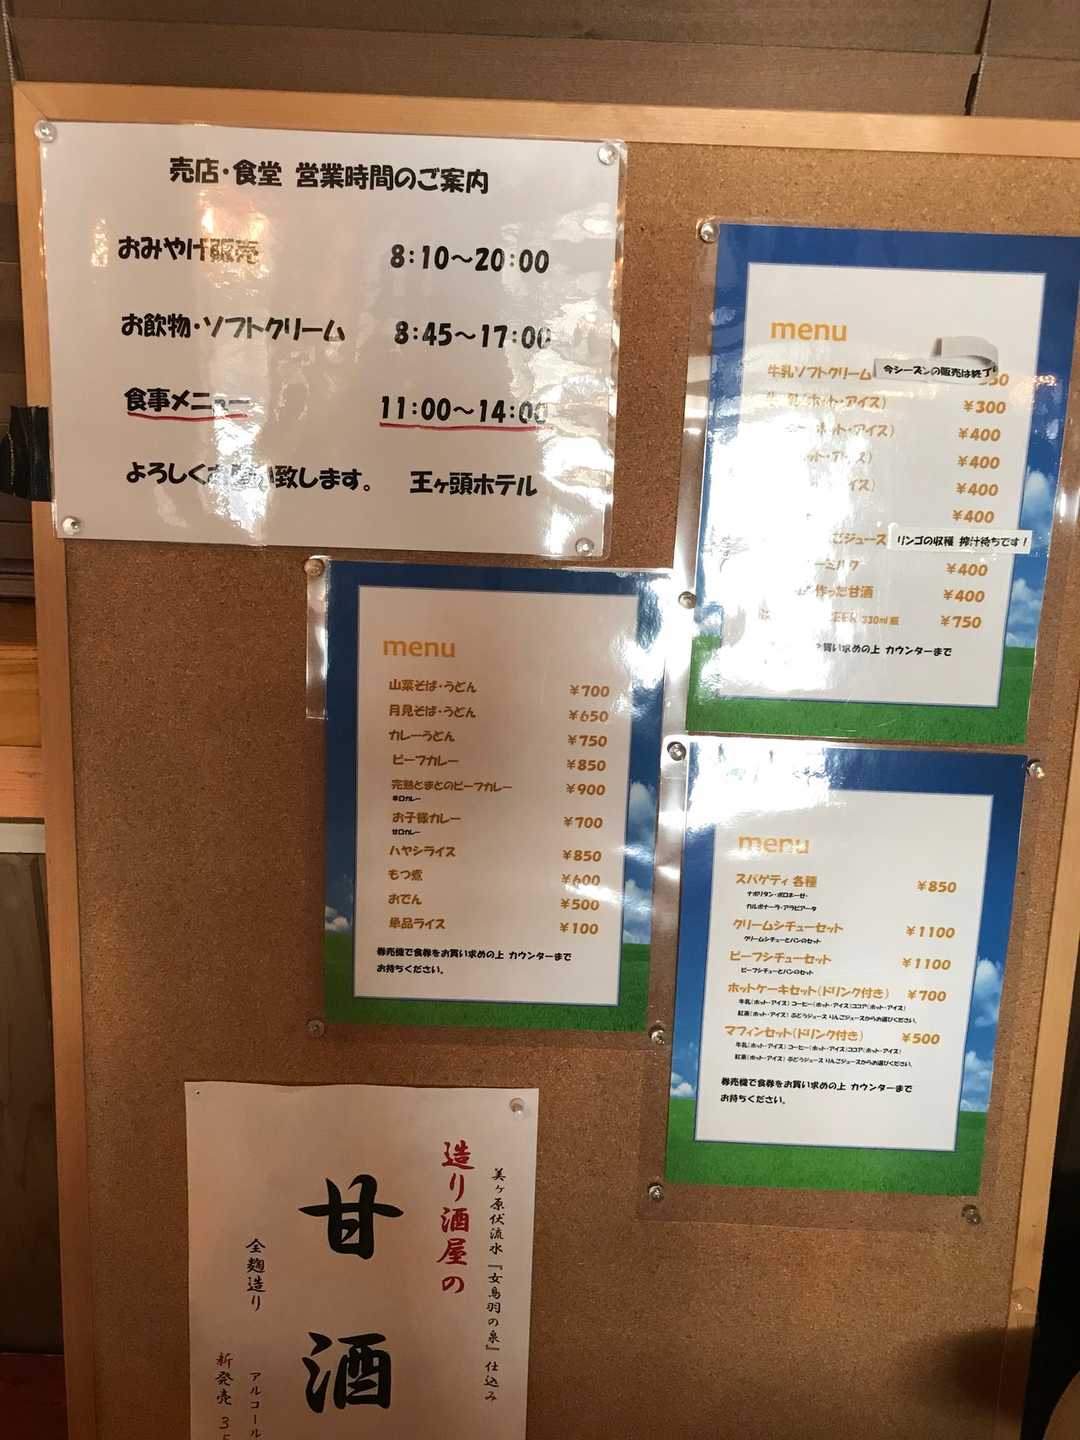 売店・食堂 営業時間のご案内
おみやげ販売 8:10〜20:00
お飲物・ソフトクリーム 8:45〜17:00
食事メニュー 11:00〜14:00
よろしくお願い致します。 王ヶ頭ホテル
menu
牛乳ソフトクリーム 今シーズンの販売は終了
(ホット・アイス) ¥300
ホット・アイス) ¥400
ット・アイス) ¥400
イス) ¥400
¥400
ごジュース リンゴの収穫 搾汁待ちです!
ーミルク ¥400
作った甘酒 ¥400
330ml瓶 ¥750
買い求めの上 カウンターまで
menu
山菜そば・うどん ¥700
月見そば・うどん ¥650
カレーうどん ¥750
ビーフカレー ¥850
完熟とまとのビーフカレー ¥900
辛口カレー
お子様カレー ¥700
甘口カレー
ハヤシライス ¥850
もつ煮 ¥600
おでん ¥500
単品ライス ¥100
券売機で食券をお買い求めの上 カウンターまで
お持ちください。
menu
スパゲティ 各種 ¥850
ナポリタン・ボロネーゼ・
カルボナーラ・アラビアータ
クリームシチューセット ¥1100
クリームシチューとパンのセット
ビーフシチューセット ¥1100
ビーフシチューとパンのセット
ホットケーキセット(ドリンク付き) ¥700
牛乳(ホット・アイス) コーヒー(ホット・アイス)ココア(ホット・アイス)
紅茶(ホット・アイス) ぶどうジュース りんごジュースからお選びください。
マフィンセット(ドリンク付き) ¥500
牛乳(ホット・アイス) コーヒー(ホット・アイス)ココア(ホット・アイス)
紅茶(ホット・アイス) ぶどうジュース りんごジュースからお選びください。
券売機で食券をお買い求めの上 カウンターまで
お持ちください。
美ヶ原伏流水『女鳥羽の泉』仕込み
造り酒屋の
甘酒
全麹造り
アルコール
新発売 35